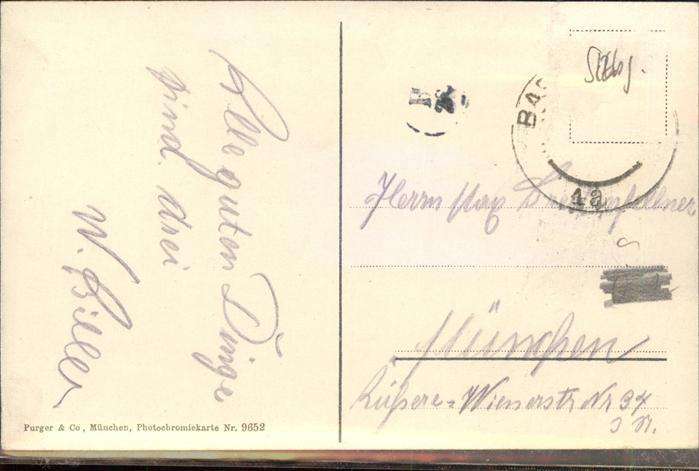 Alle guten Dinge
sind drei
W. Biller
Purger & Co, München, Photochromiekarte Nr. 9652
BAD
42
Herrn Max
München
Äußere-Wienerstr Nr 34